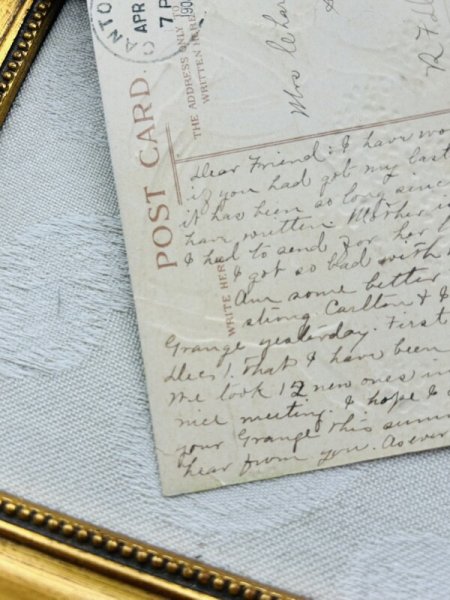 ANTO
APR
7 P
190
POST CARD.
THE ADDRESS ONLY TO BE
WRITTEN HERE
WRITE HERE
Mrs Char
R Fal
Dear Friend: I have wo
if you had got my last
it has been so long since
have written Mother is
I had to send for her
I got so bad with
Am some better
strong Carlton & I
Grange yesterday. First
Dec 1. That I have been
We took 12 new ones in
nice meeting. I hope I
your Grange this summ
hear from you. As ever